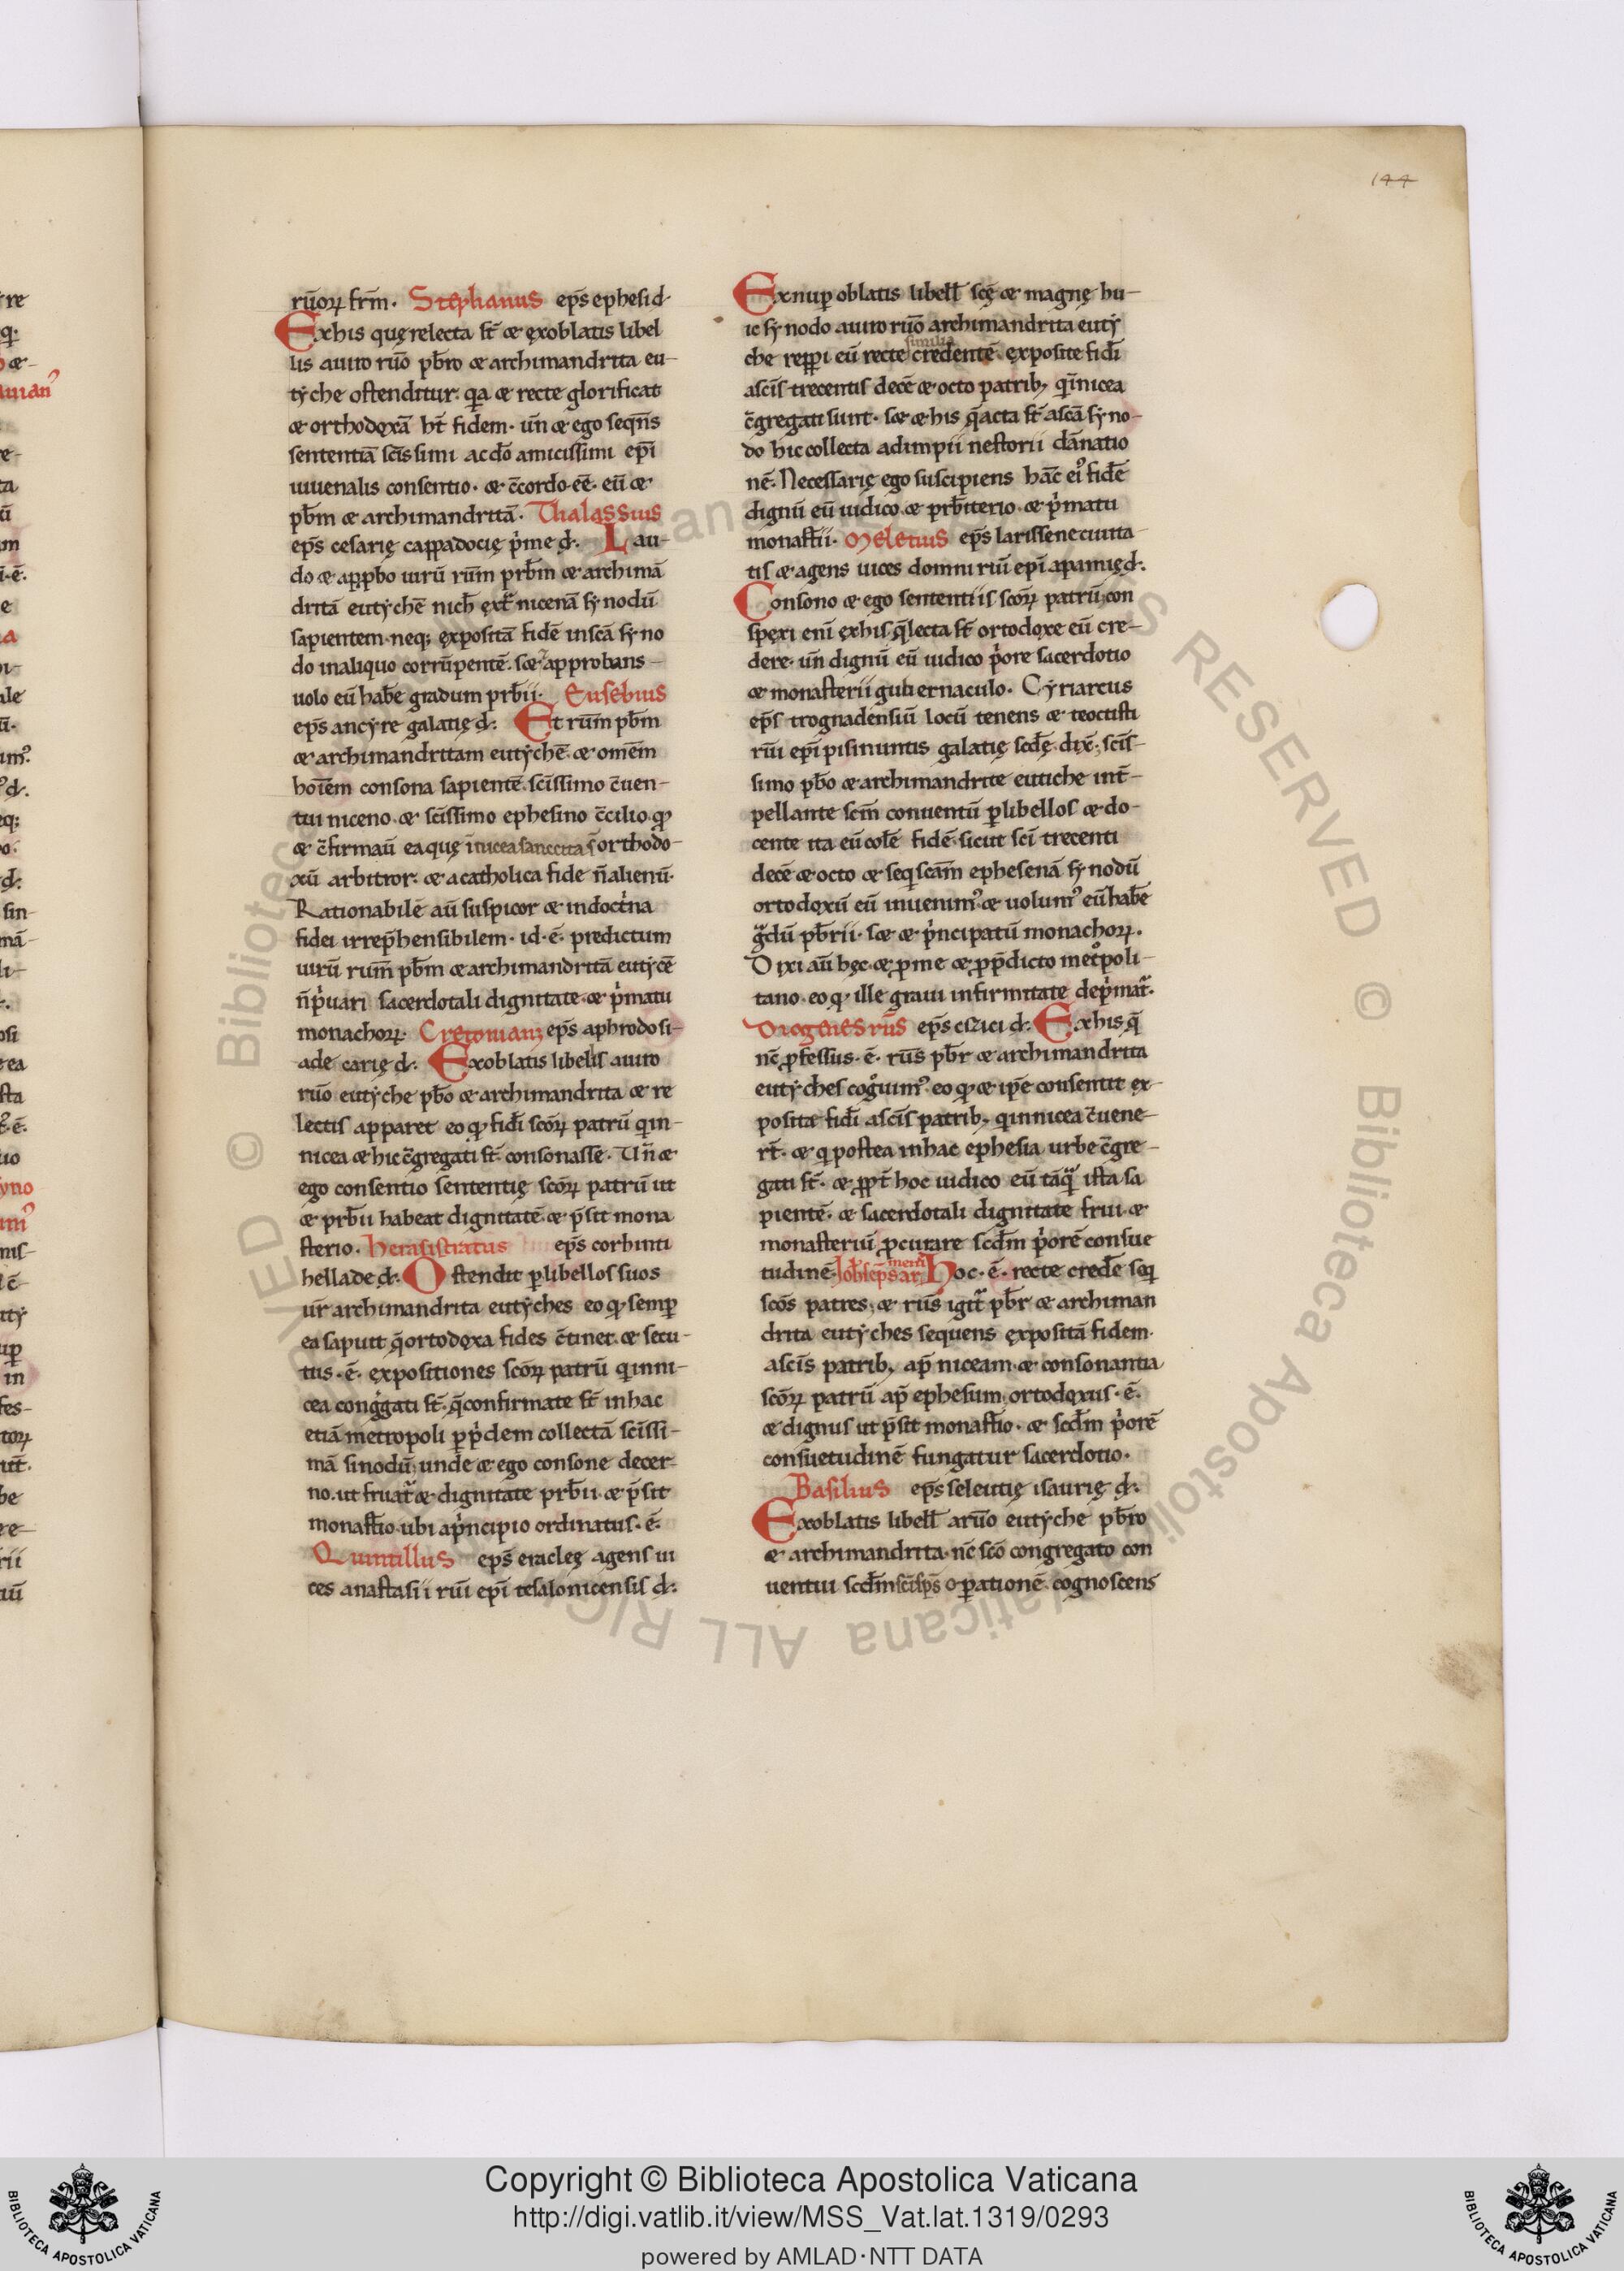 144
rūoꝝ fr̄m. Stephanus ep̄s ephesi d̄
Ex his quę relecta st̄ & ęxoblatis libel
lis a uiro rūo pb̄ro & archimandrita eu-
tyche ostenditur. q̇a & recte glorificat
& orthodoxā hт̄ fidem. un̄ & ego seqn̄s
sententiā sc̄issimi ac dō amicissimi ep̄i
iuuenalis consentio. & c̄cordo. ēē. eū &
pb̄m & archimandritā. Thalassius
ep̄s cesarię cappadocię p̍me d̄. Lau-
do & appbo uirū rūm prb̄m & archimā
dritā eutychē nich̄ ext̄ nicenā synodū
sapientem. neq; ęxpositā fidē in scā syno
do in aliquo corrūpentē. s& approbans
uolo eū hab̄e gradum prb̄ii. Eusebius
ep̄s ancyre galatię d̄: Et rūm pb̄m
& archimandritam eutychē. & omēm
hoīem consona sapientē. sc̄issimo c̄uen-
tui niceno. & sc̄issimo ephesino c̄cilio. qꝫ
& c̄firmaū ea quę ī nicea sanccita s̄ orthodo-
xū arbitror. & a catholica fide n̄ alienū.
Rationabilē aū suspicor & in doct̍na
fidei irrep̄hensibilem. id. ē. predictum
uirū rūm pb̄m & archimandritā eutycē
n̄ p̍uari sacerdotali dignitate & p̍matu
monachoꝝ. Cretonianꝫ ep̄s aphrodosi-
ade carię d̄: Exoblatis libellis a uiro
rūo eutyche pb̄o & archimandrita & re
lectis apparet eo qꝫ fidī scōꝝ patrū q̍ in-
nicea & hic c̄gregati st̄. consonasse. Un̄ &
ego consentio sententię scōꝝ patrū ut
& prb̄ii habeat dignitatē & p̄sit mona
sterio. Herasistratus ep̄s corhinti
hellade d̄. Ostendit ꝑ libellos suos
ur̄ archimandrita eutyches eo qꝫ semꝑ
ea saput q̄ ortodoxa fides c̄tinet. & secu-
tus. ē. expositiones scōꝝ patrū q̍ in ni-
cea cong̍gati st̄. q̄ confirmate st̄ in hac
etiā metropoli ꝑ p̍dem collectā sc̄issi-
mā sinodū. unde & ego consone decer-
no. ut fruat̄ & dignitate prb̄ii. & p̄sit
monast̄io. ubi a p̍ncipio ordinatus. ē.
Quintillus ep̄s eraclę agens ui
ces anastasii rūi ep̄i tesalonicensis d̄:
Ex nuꝑ oblatis libell̄ scę & magnę hu-
ic synodo a uiro rūo archimandrita euty
che repp̍i eū recte similia credentē. exposite fidī
a sc̄is trecentis decē & octo patrib; q̍ ī nicea
c̄gregati sunt. s& & his q̄ acta st̄ a scā syno-
do hic collecta ad impii nestorii dānatio
nē. Necessarię ego suscipiens hāc ei᾿ fidē
dignū eū iudico. & prb̄iterio. & p̍matu
monast̄ii. Meletius ep̄s larissene ciuita
tis & agens uices domni rūi ep̄i apamię d̄.
Consono & ego sententiis scōꝝ patrū. con
spexi enī ęx his q̄ lecta st̄ ortodoxe eū cre-
dere. un̄ dignū eū iudico p̍ore sacerdotio
& monasterii gubernaculo. Cyriarcus
ep̄s trognadensiū locū tenens & teoctisti
rūi ep̄i pisinuntis galatię scd̄ę. dix̄. sc̄is-
simo pb̄o & archimandrite eutiche int̄-
pellante scm̄ conuentū ꝑ libellos & do-
cente ita eū cole fidē. sicut sc̄i trecenti
decē & octo & seq̍ scam̄ ephesenā synodū
ortodoxū eū inuenim᾿ & uolum᾿ eū hab̄e
g̍dū pb̄rii. s& & p̍ncipatū monachoꝝ.
Dixi aū hęc. & ꝑ me & ꝓ p̄dicto met̍poli-
tano. eo qꝫ ille graui infirmitate dep̍mat̄.
Diogenes rūs ep̄s cizici d̄. Ex his q̄
nc̄ ꝓfessus. ē. rūs pb̄r & archimandrita
eutyches cog̍uim᾿. eo qꝫ & ip̄e consentit ex-
posite fidī a sc̄is patrib; q̍ in nicea c̄uene-
rt̄. & q̍ postea in hac ephesia urbe c̄gre-
gati st̄. & ꝓpт̄ hoc iudico eū tāq̄ ista sa
pientē. & sacerdotali dignitate frui. &
monasteriū ꝓcurare scd̄m p̍orē consue
tudinē. Ioh̄s ep̄s armeni Hoc. ē. recte credē seq̍
scōs patres. & rūs igit̄ pb̄r & archiman
drita eutyches sequens ęxpositā fidem.
a sc̄is patrib; ap̄ niceam. & consonantia
scōꝝ patrū ap̄ ephesum. ortodoxus. ē.
& dignus ut p̄sit monast̄io. & scd̄m p̍orē
consuetudinē fungatur sacerdotio.
Basilius ep̄s seleutię isaurię d̄:
Exoblatis libell̄ a rūo eutyche pb̄ro
& archimandrita. nc̄ scō congregato con
uentui scd̄m sc̄i sp̄s oꝑationē. cognoscens
Copyright © Biblioteca Apostolica Vaticana
http://digi.vatlib.it/view/MSS_Vat.lat.1319/0293
powered by AMLAD·NTT DATA
BIBLIOTECA APOSTOLICA VATICANA
BIBLIOTECA APOSTOLICA VATICANA
© Biblioteca Apostolica Vaticana ALL RIGHTS RESERVED